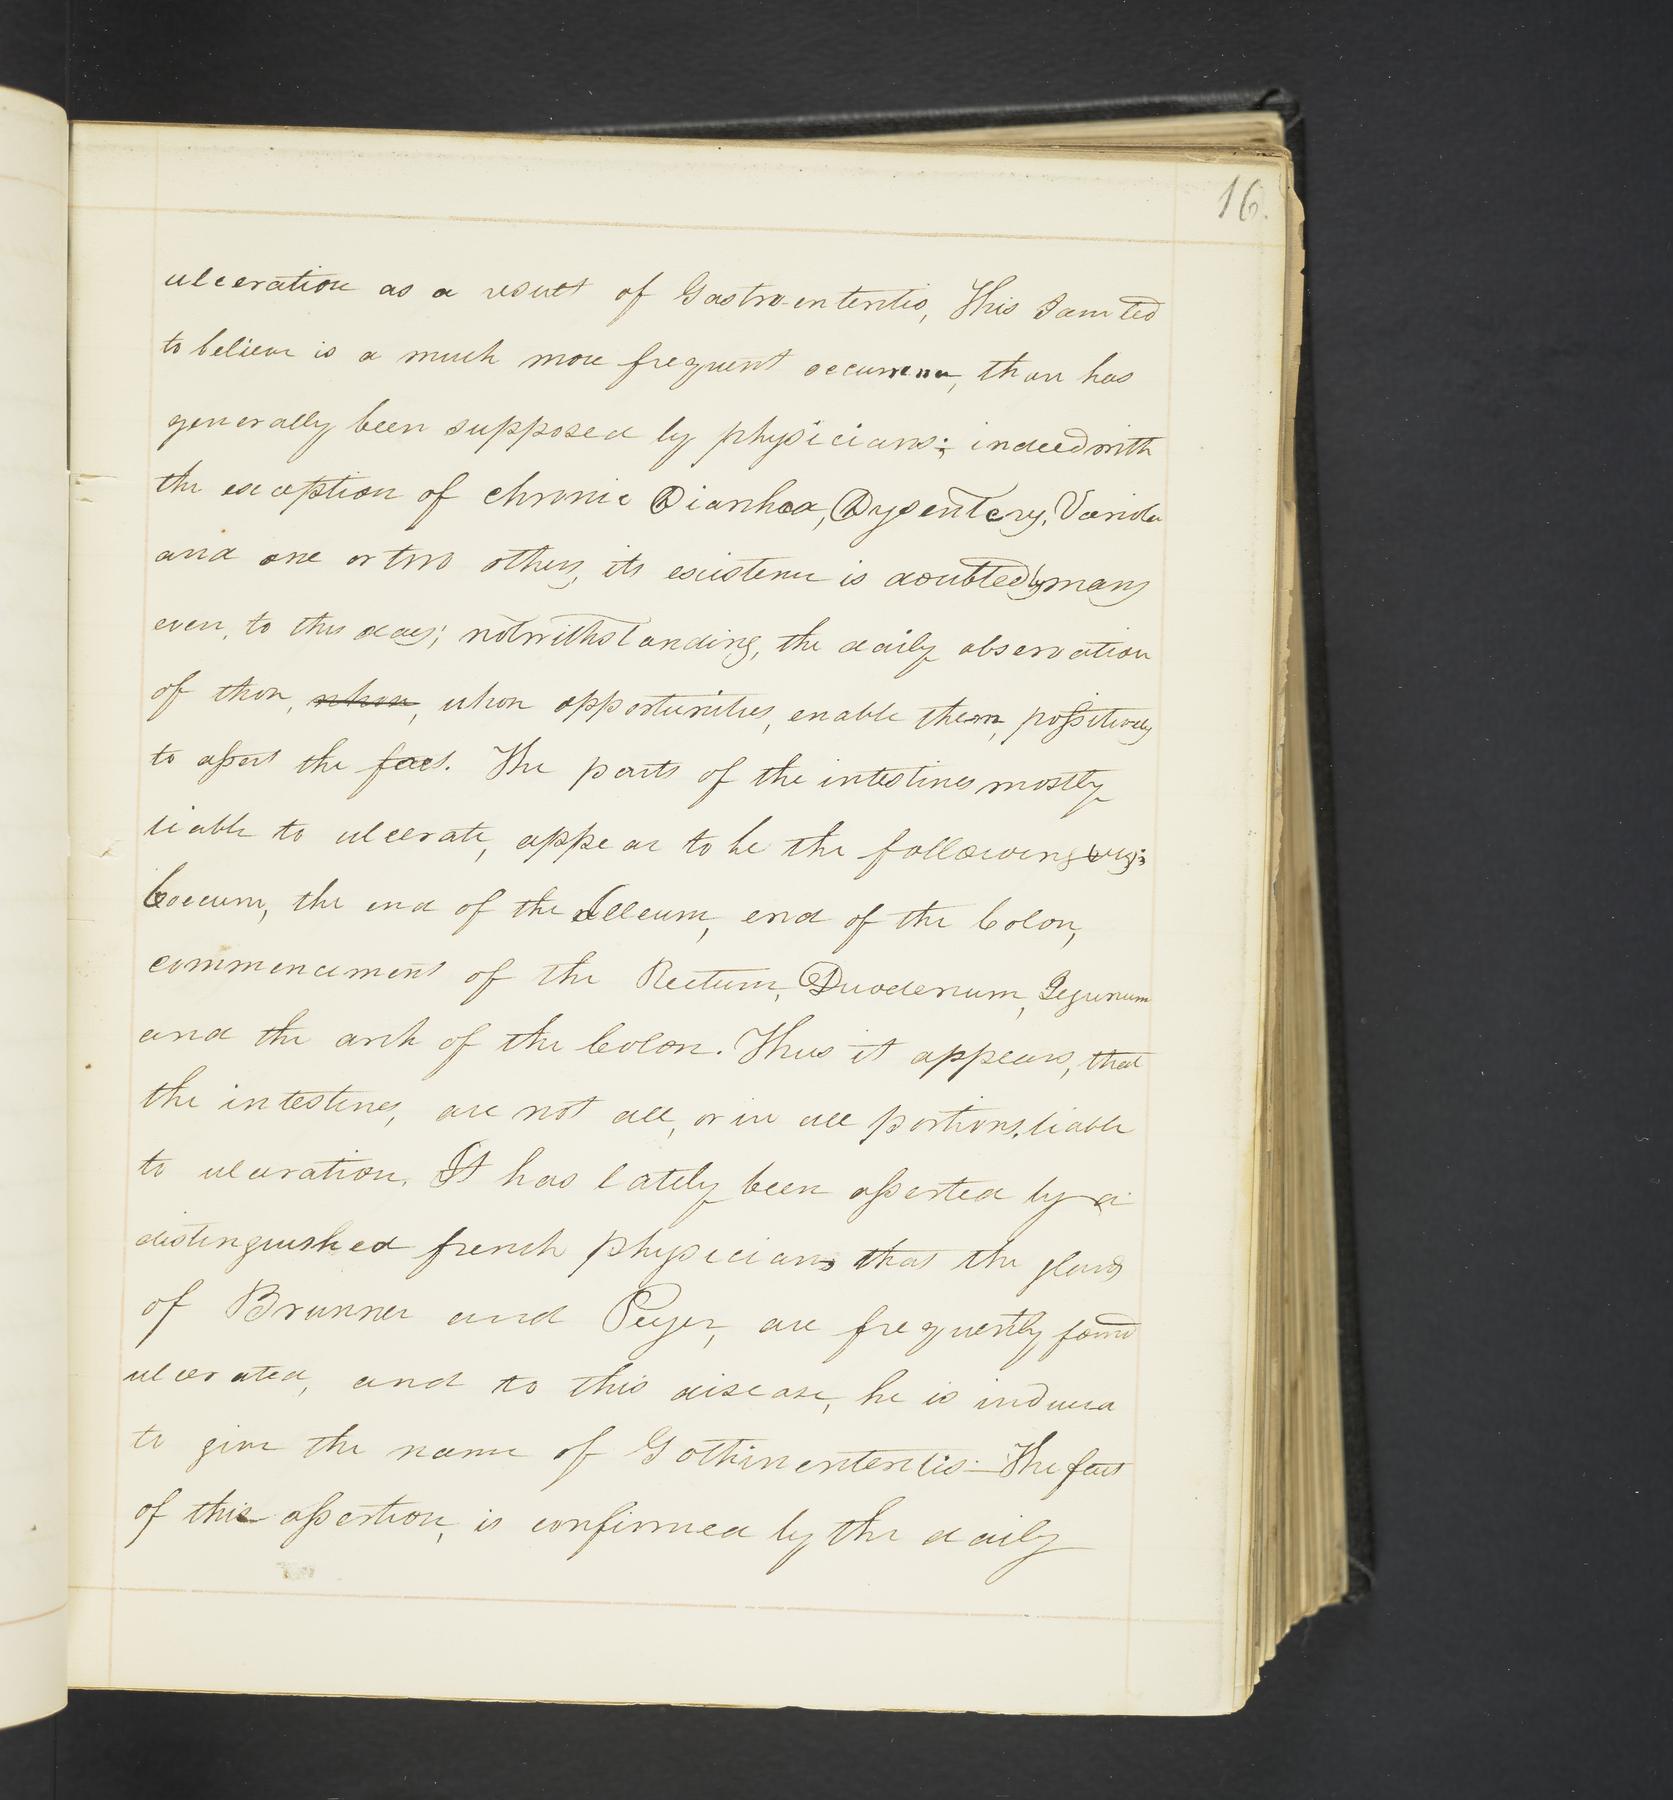 16.
ulceration as a result of Gastro-enteritis, This I am led
to believe is a much more frequent occurrence, than has
generally been supposed by physicians; indeed with
the exception of chronic Diarrhœa, Dysentery, Variola
and one or two others, its existence is doubted by many
even, to this day; notwithstanding, the daily observation
of those, whose, whose opportunities, enable them, possitively
to assert the fact. The parts of the intestines mostly
liable to ulcerate, appear to be the following
Coecum, the end of the Illeum, end of the Colon,
commencement of the Rectum, Duodenum, Jejunum
and the arch of the Colon. Thus it appears, that
the intestines, are not all, or in all portions, liable
to ulceration. It has lately been asserted by a
distinguished french physician that the glands
of Brunner and Peyer, are frequently found
ulcerated, and to this disease, he is induced
to give the name of Gothinenteritis.— The fact
of this assertion, is confirmed by the daily